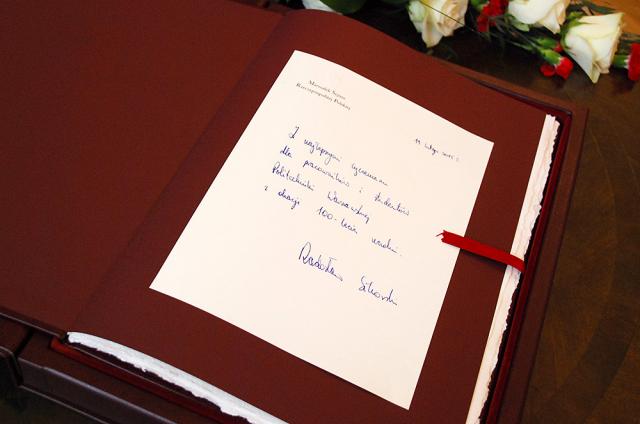 Marszałek Sejmu
Rzeczypospolitej Polskiej
11 lutego 2015 r.
Z najlepszymi życzeniami
dla pracowników i studentów
Politechniki Warszawskiej
z okazji 100-lecia uczelni.
Radosław Sikorski